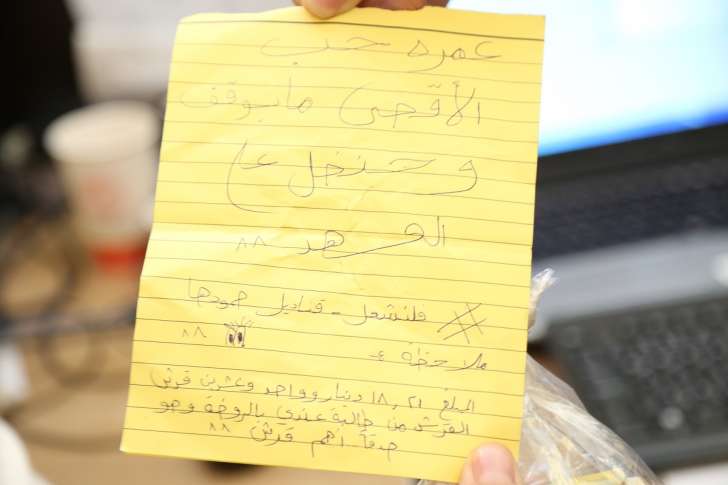 عمره حب
الأقصى مابوقف
وحنضل ع
العهد ^^
# فلنشعل - قناديل صمودها
^^
ملاحظة :-
المبلغ ١٨,٢١ دينار وواحد وعشرين قرش
القرش من طالبة عندي بالروضة وهو
حقاً أهم قرش ^^